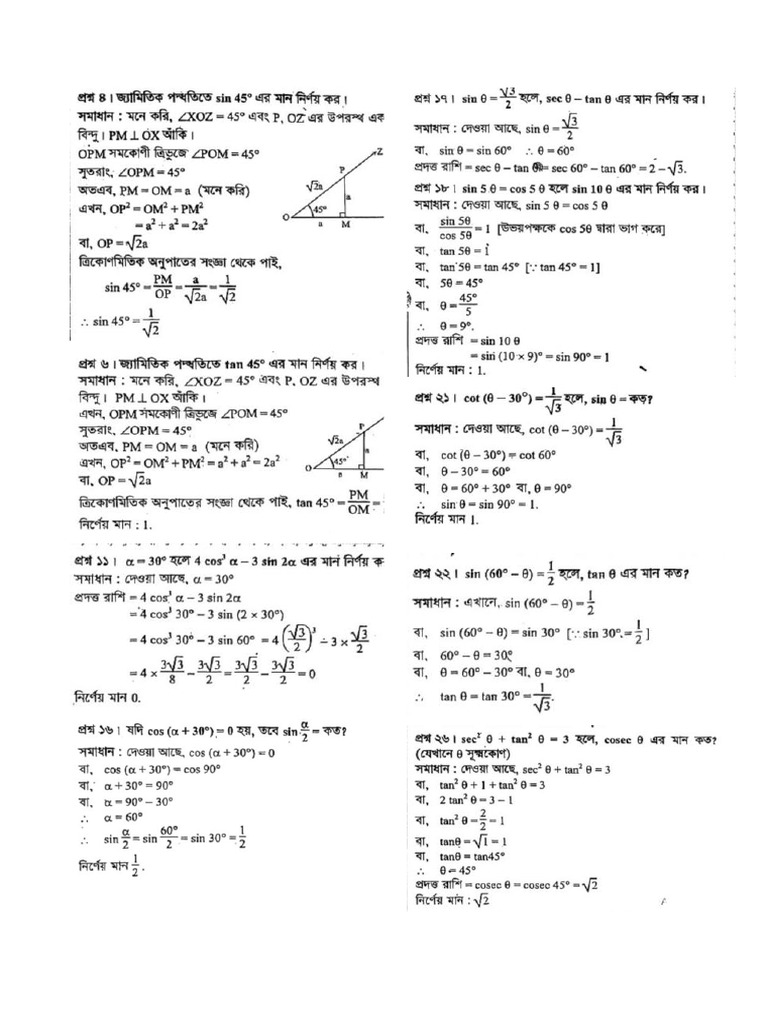 প্রশ্ন ৪। জ্যামিতিক পদ্ধতিতে sin 45° এর মান নির্ণয় কর।
সমাধান : মনে করি, ∠XOZ = 45° এবং P, OZ এর উপরস্থ এক
বিন্দু। PM ⊥ OX আঁকি।
OPM সমকোণী ত্রিভুজে ∠POM = 45°
সুতরাং, ∠OPM = 45°
অতএব, PM = OM = a (মনে করি)
এখন, OP² = OM² + PM²
= a² + a² = 2a²
বা, OP = √2a
Z
P
√2a
a
45°
O
a
M
ত্রিকোণমিতিক অনুপাতের সংজ্ঞা থেকে পাই,
sin 45° = PM/OP = a/√2a = 1/√2
∴ sin 45° = 1/√2
প্রশ্ন ৬। জ্যামিতিক পদ্ধতিতে tan 45° এর মান নির্ণয় কর।
সমাধান : মনে করি, ∠XOZ = 45° এবং P, OZ এর উপরস্থ
বিন্দু। PM ⊥ OX আঁকি।
এখন, OPM সমকোণী ত্রিভুজে ∠POM = 45°
সুতরাং, ∠OPM = 45°
অতএব, PM = OM = a (মনে করি)
এখন, OP² = OM² + PM² = a² + a² = 2a²
বা, OP = √2a
P
√2a
a
45°
O
a
M
ত্রিকোণমিতিক অনুপাতের সংজ্ঞা থেকে পাই, tan 45° = PM/OM =
নির্ণেয় মান : 1.
প্রশ্ন ১১। α = 30° হলে 4 cos³ α – 3 sin 2α এর মান নির্ণয় ক
সমাধান : দেওয়া আছে, α = 30°
প্রদত্ত রাশি = 4 cos³ α – 3 sin 2α
= 4 cos³ 30° – 3 sin (2 × 30°)
= 4 cos³ 30° – 3 sin 60° = 4 (√3/2)³ ÷ 3 × √3/2
= 4 × 3√3/8 – 3√3/2 = 3√3/2 – 3√3/2 = 0
নির্ণেয় মান 0.
প্রশ্ন ১৬। যদি cos (α + 30°) = 0 হয়, তবে sin α/2 = কত?
সমাধান : দেওয়া আছে, cos (α + 30°) = 0
বা, cos (α + 30°) = cos 90°
বা, α + 30° = 90°
বা, α = 90° – 30°
∴ α = 60°
∴ sin α/2 = sin 60°/2 = sin 30° = 1/2
নির্ণেয় মান 1/2.
প্রশ্ন ১৭। sin θ = √3/2 হলে, sec θ – tan θ এর মান নির্ণয় কর।
সমাধান : দেওয়া আছে, sin θ = √3/2
বা, sin θ = sin 60° ∴ θ = 60°
প্রদত্ত রাশি = sec θ – tan θ = sec 60° – tan 60° = 2 – √3.
প্রশ্ন ১৮। sin 5 θ = cos 5 θ হলে sin 10 θ এর মান নির্ণয় কর।
সমাধান : দেওয়া আছে, sin 5 θ = cos 5 θ
বা, sin 5θ/cos 5θ = 1 [উভয়পক্ষকে cos 5θ দ্বারা ভাগ করে]
বা, tan 5θ = 1
বা, tan 5θ = tan 45° [∵ tan 45° = 1]
বা, 5θ = 45°
বা, θ = 45°/5
∴ θ = 9°.
প্রদত্ত রাশি = sin 10 θ
= sin (10 × 9)° = sin 90° = 1
নির্ণেয় মান : 1.
প্রশ্ন ২১। cot (θ – 30°) = 1/√3 হলে, sin θ = কত?
সমাধান : দেওয়া আছে, cot (θ – 30°) = 1/√3
বা, cot (θ – 30°) = cot 60°
বা, θ – 30° = 60°
বা, θ = 60° + 30° বা, θ = 90°
∴ sin θ = sin 90° = 1.
নির্ণেয় মান 1.
প্রশ্ন ২২। sin (60° – θ) = 1/2 হলে, tan θ এর মান কত?
সমাধান : এখানে, sin (60° – θ) = 1/2
বা, sin (60° – θ) = sin 30° [∵ sin 30° = 1/2 ]
বা, 60° – θ = 30°
বা, θ = 60° – 30° বা, θ = 30°
∴ tan θ = tan 30° = 1/√3.
প্রশ্ন ২৬। sec² θ + tan² θ = 3 হলে, cosec θ এর মান কত?
(যেখানে θ সূক্ষ্মকোণ)
সমাধান : দেওয়া আছে, sec² θ + tan² θ = 3
বা, tan² θ + 1 + tan² θ = 3
বা, 2 tan² θ = 3 – 1
বা, tan² θ = 2/2 = 1
বা, tanθ = √1 = 1
বা, tanθ = tan45°
∴ θ = 45°
প্রদত্ত রাশি = cosec θ = cosec 45° = √2
নির্ণেয় মান : √2